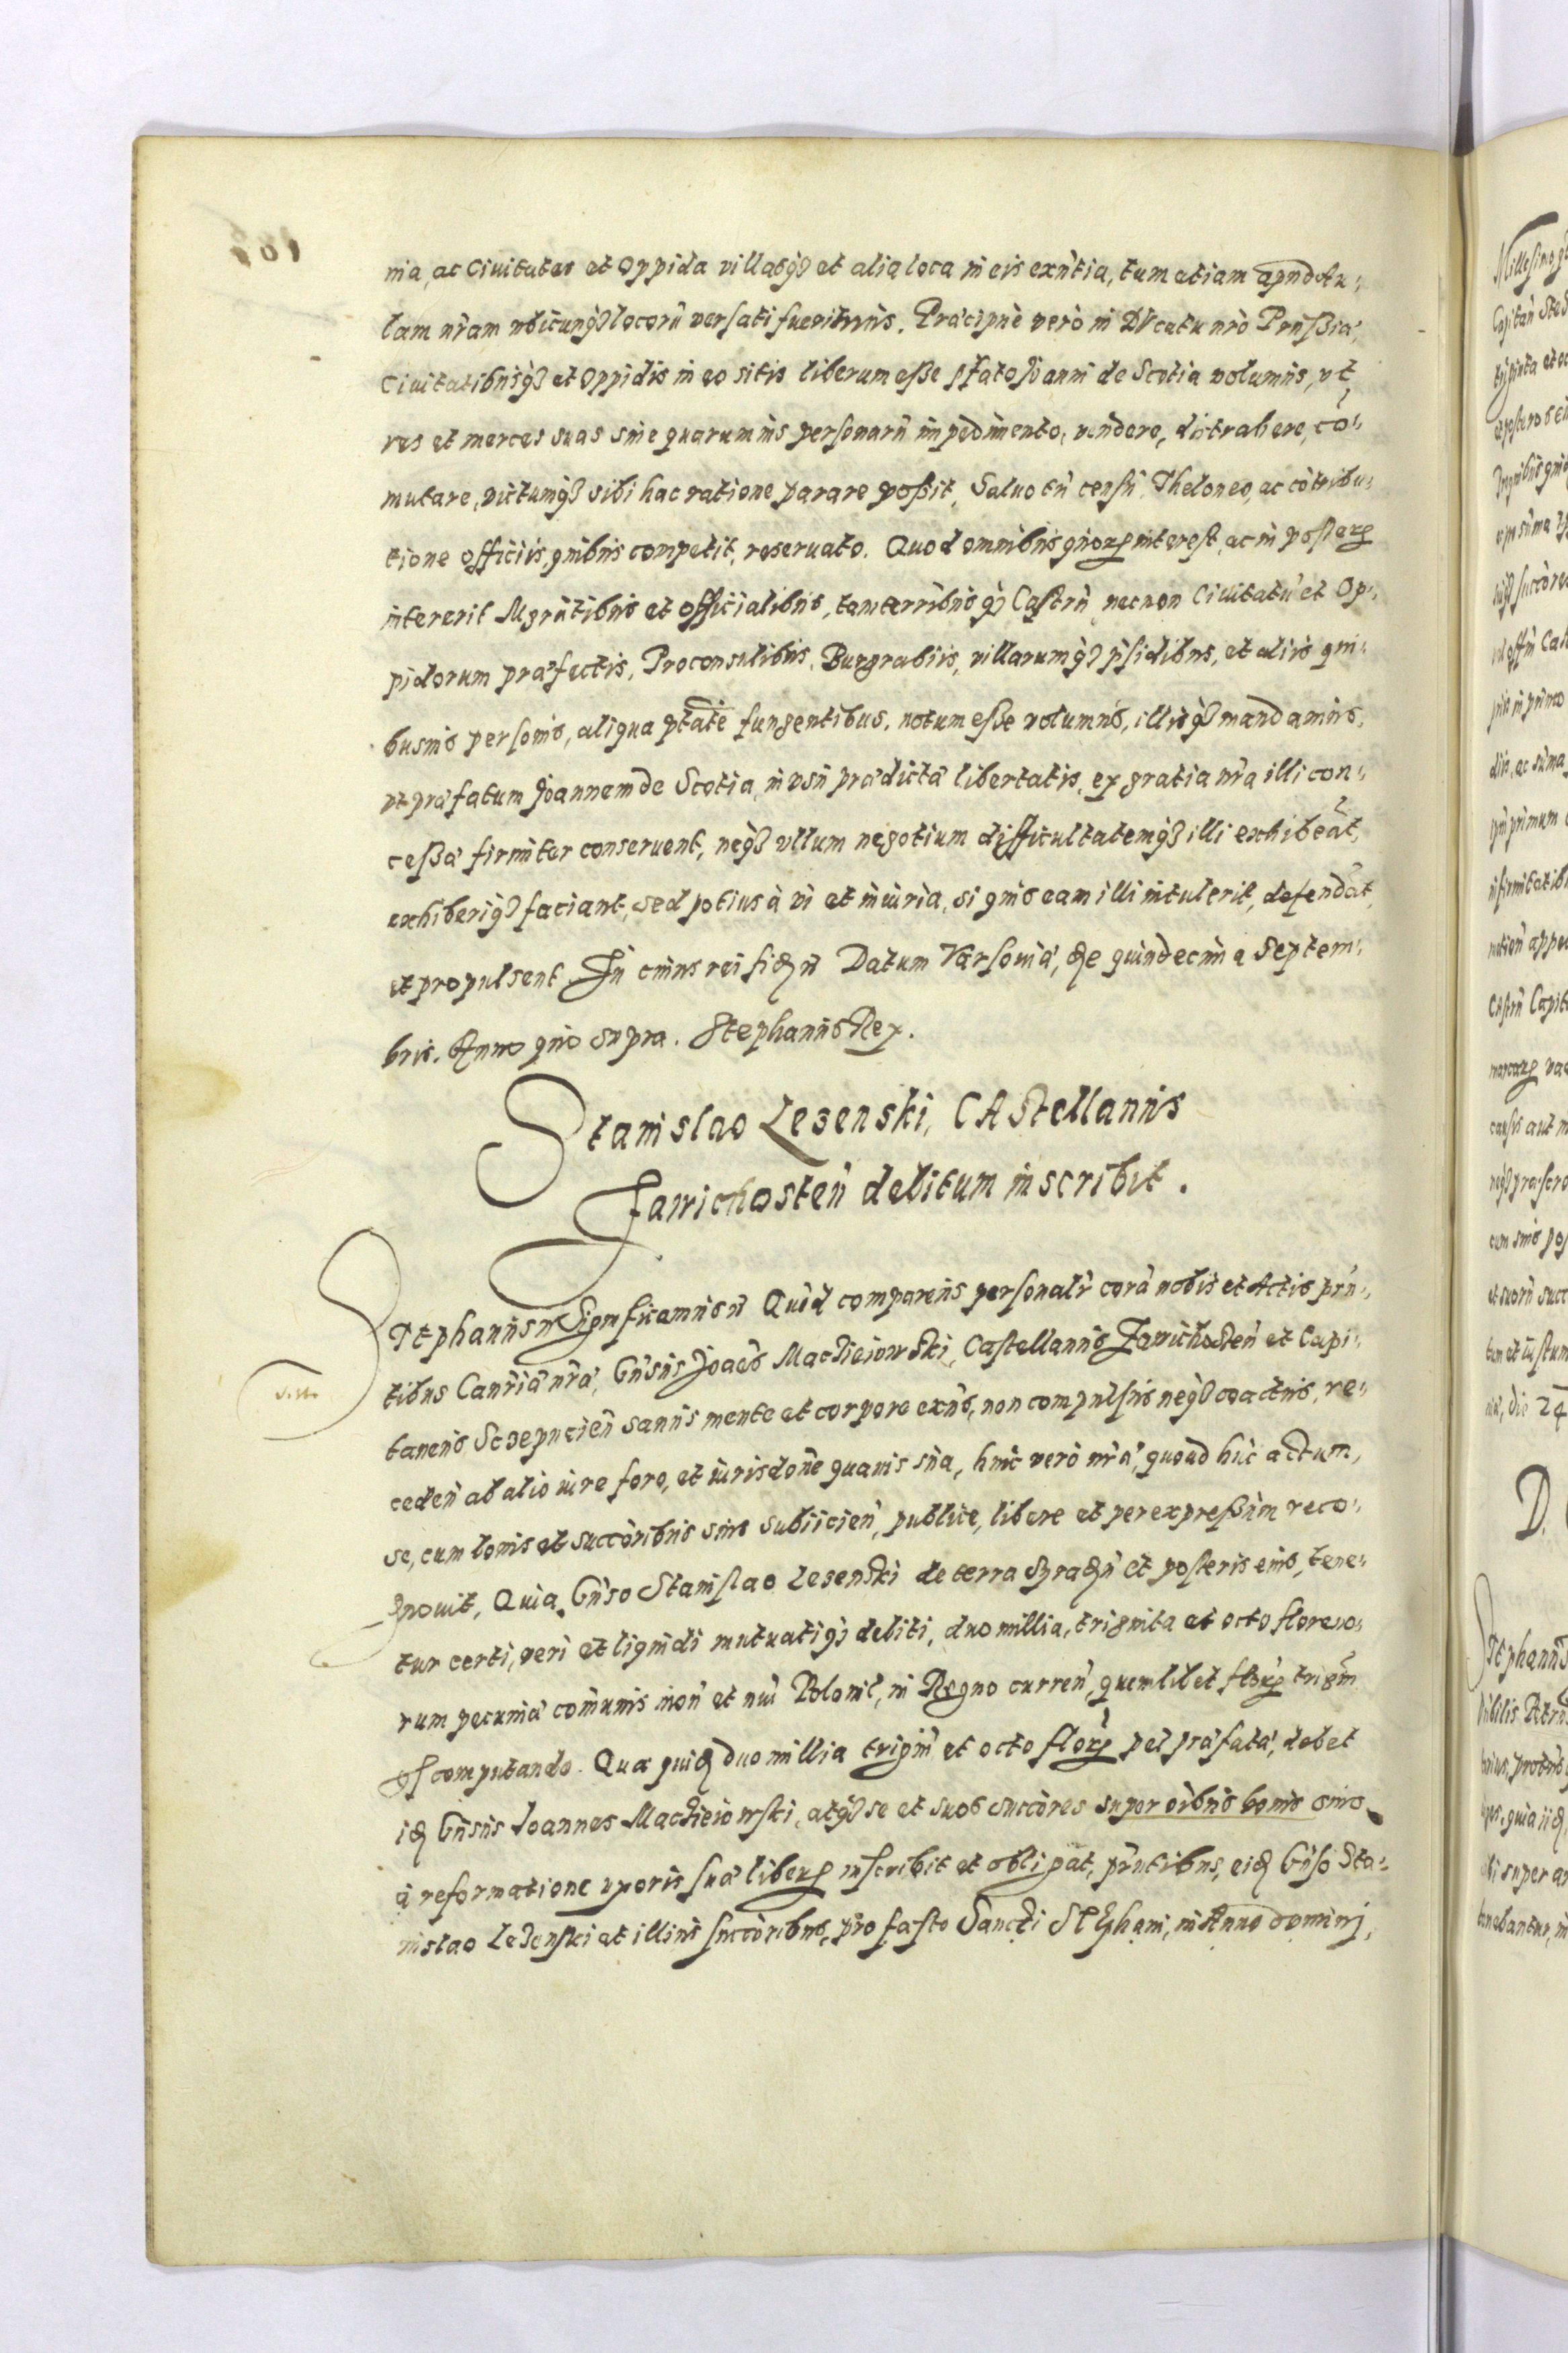 nia, ac Ciuitates et Oppida villasq3 et alia loca in eis exñtia, tum etiam apud Au-
lam nr̃am vbicunq3 locorũ versati fuerimus. Præcipuè verò in DVcatu nr̃o Prussiæ,
Ciuitatibusq3 et Oppidis in eo sitis liberum esse pfato Joanni de Scotia volumus, vt
res et merces suas sine quarumuis personarũ impedimento, vendere, distrahere, cõ-
mutare, victumq3 sibi hac ratione parare possit, Saluo tñ censu, Theloneo, ac cõtribu-
tione officiis quibus competit, reseruato. Quod omnibus quorum interest, ac in posterum
intererit Mgrãtibus et Officialibus, tam terribus q3 Castrñ, necnon Ciuitatũ et Op-
pidorum præfectis, Proconsulibus, Burgrabiis, villarumq3 pśidibus, et aliis qui-
busuis personis, aliqua ptãte fungentibus, notum esse volumus, illisq3 mandamus,
vt præfatum Joannem de Scotia, in vsu prædictæ libertatis, ex gratia nr̃a illi con-
cessæ firmiter conseruent, neq3 vllum negotium difficultatemq3 illi exhibeãt,
exhiberiq3 faciant, sed potius à vi et iniuria, si quis eam illi intulerit, defendãt,
et propulsent. In cuius rei fidem Datum Varsouiæ, die quindecima Septem-
bris. Anno quo supra. Stephanus Rex.
Stanislao Lezenski, CAstellanus
Zawichosteñ debitum inscribit.
Stephanus Significamus Quòd comparens personalr̃ corã nobis et Actis prñ-
tibus Canr̃iæ nr̃æ, Gñsus Joañes Maciieiowski, Castellanus Zawichosteñ et Capi-
taneus Sczepucień sanus mente et corpore exñs, non compulsus neq3 coactus, re-
cedeñ ab alio iure foro, et iurisdoñe quauis sua, huic verò nr̃æ, quoad huc actum,
se, cum bonis et succoribus suis subiicień, publice, libere et per expressum reco-
gnouit, Quia Gñso Stanislao Lezenski de terra Syradñ et posteris eius, tene-
tur certi, veri et liquidi mutuatiq3 debiti, duo millia, triginta et octo floreno-
rum pecuniæ coṁunis moñ et nuï Polonic̃, in Regno curreñ, quemlibet florum trigiñ
gr computando. Quæ quidem duo millia trigiñ et octo florum pec̃ præfatæ, debet
idem Gñsus Ioannes Maciieiowski, atq3 se et suos succóres super oïbus bonis suis
à reformatione vxoris suæ liberum inscribit et obligat, prñtibus, eidem Gñso Sta-
nislao Lezenski et illius succoribus, pro festo Sancti Stephani, in Anno dominj,